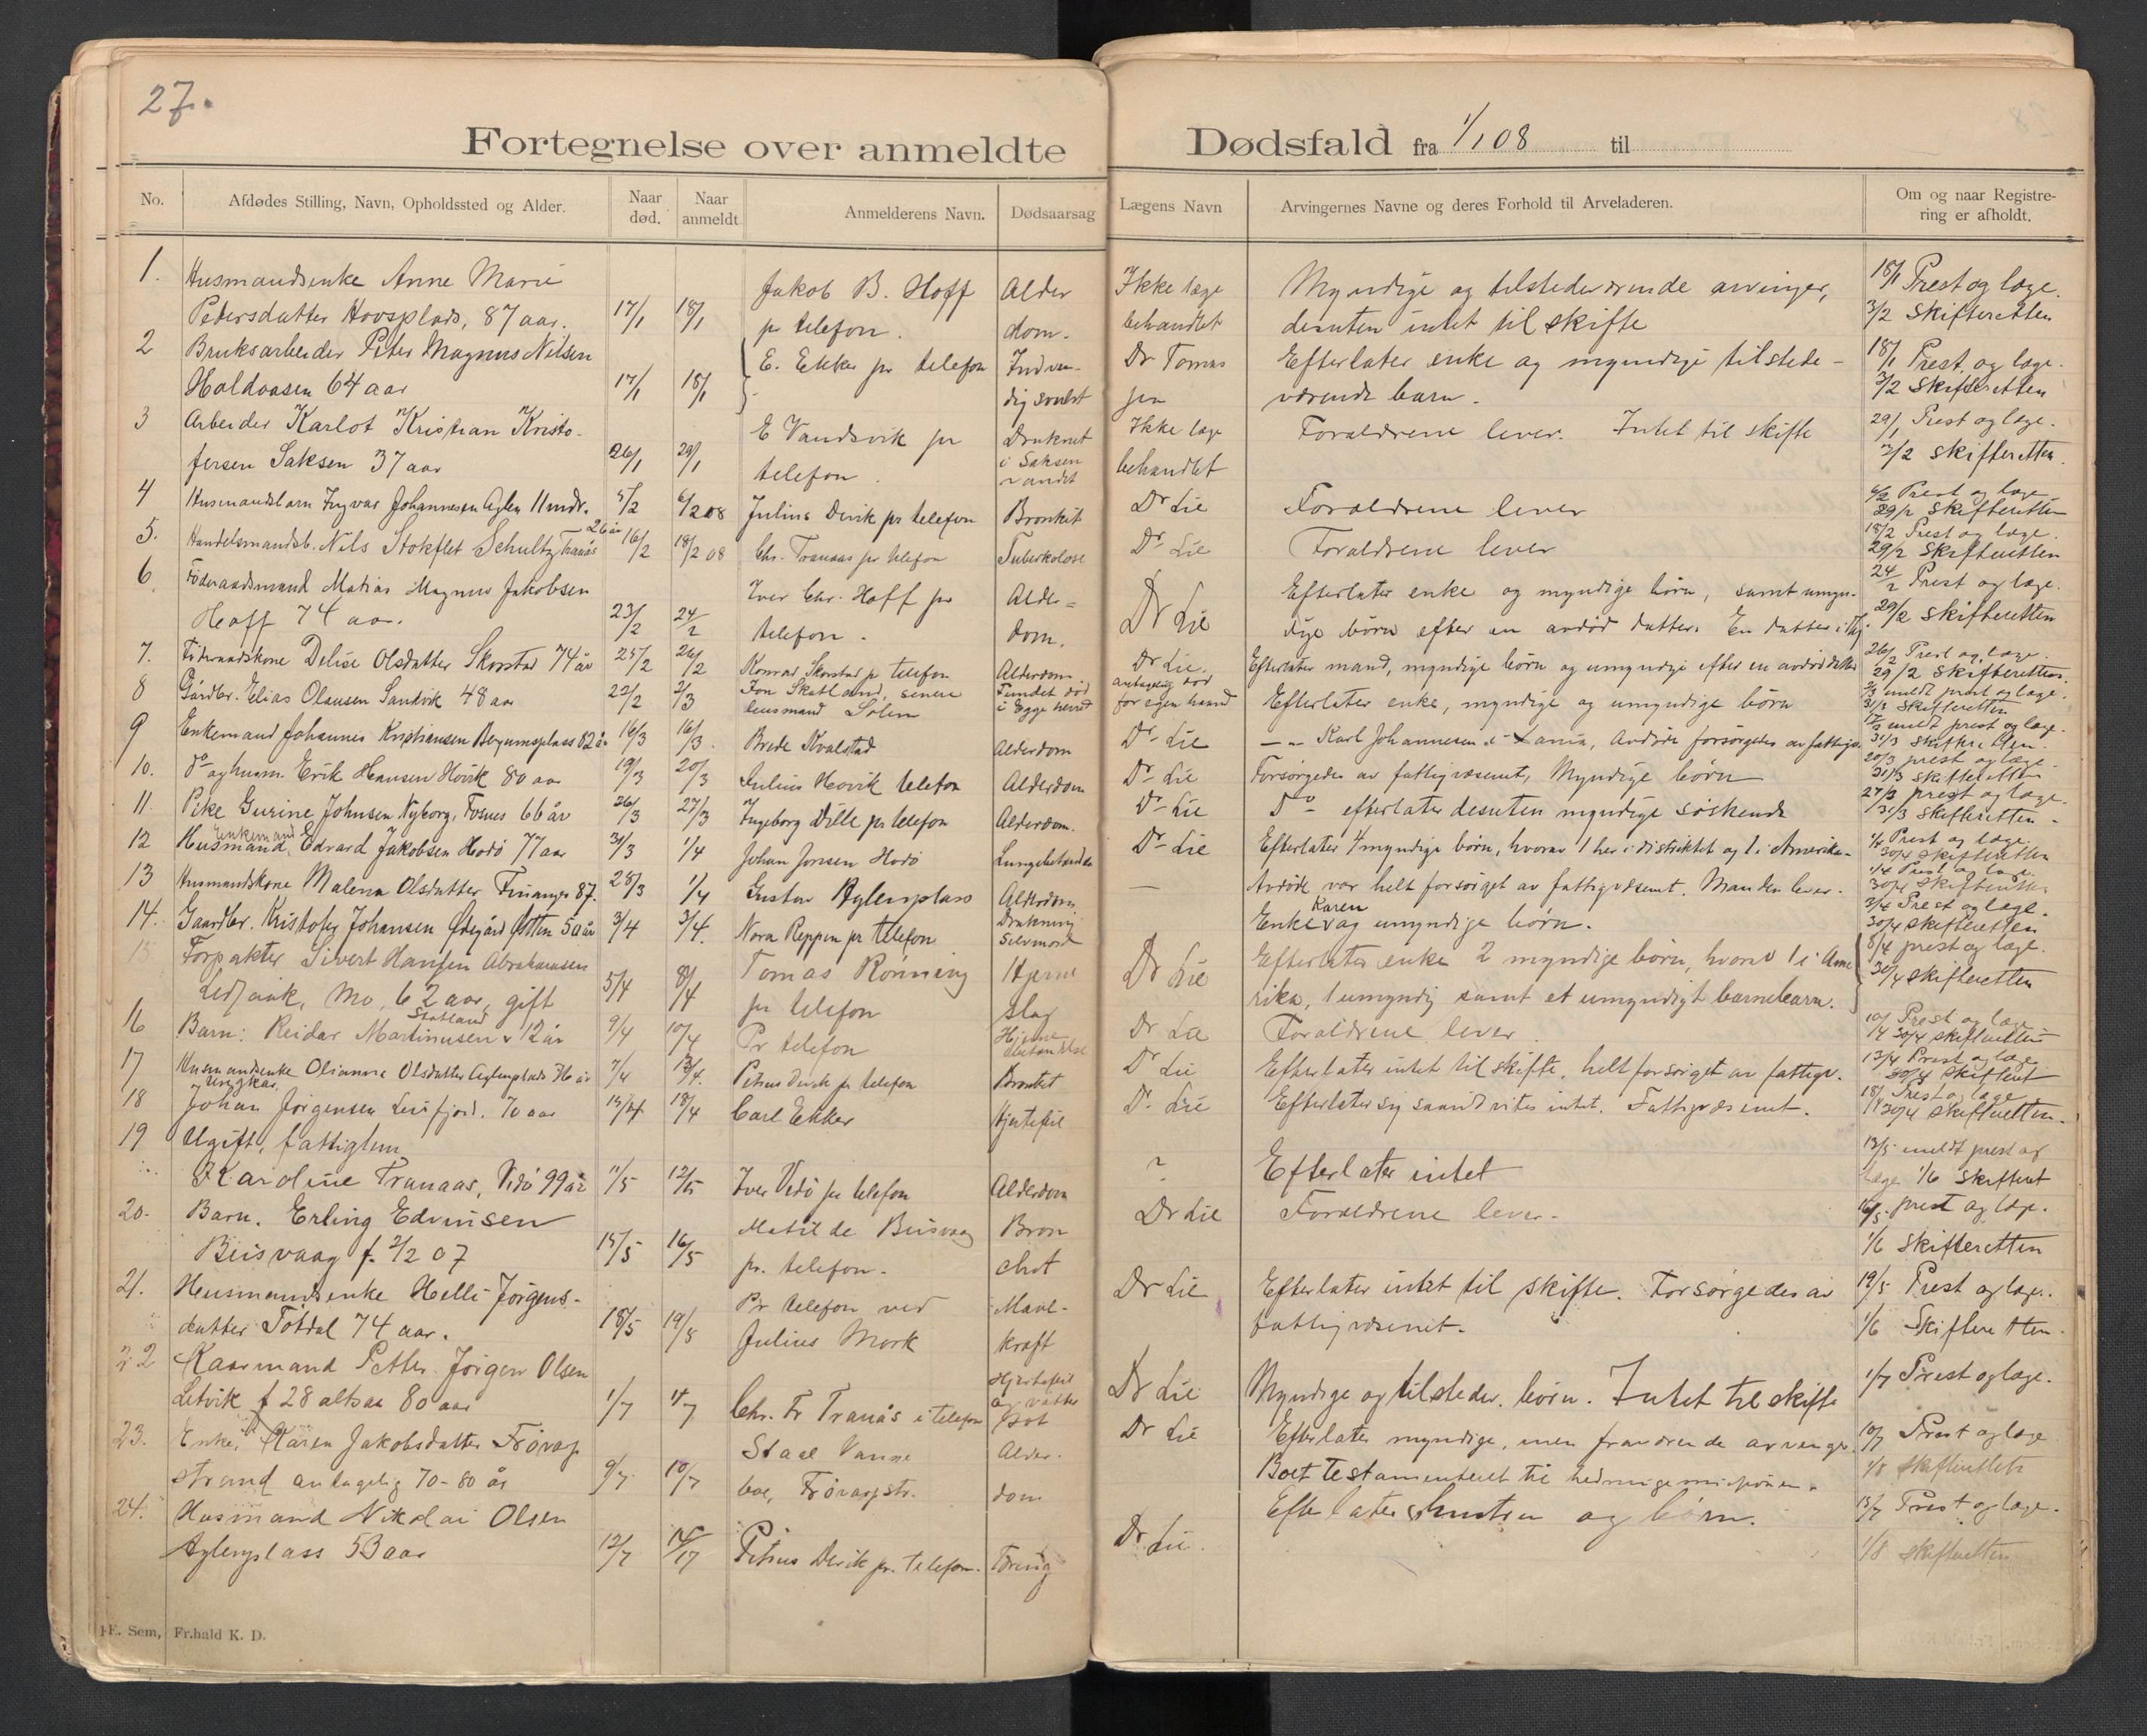 27.
Fortegnelse over anmeldte Dødsfald fra 1/1 08 til
No. Afdødes Stilling, Navn, Opholdssted og Alder. Naar død. Naar anmeldt Anmelderens Navn. Dødsaarsag Lægens Navn Arvingernes Navne og deres Forhold til Arveladeren. Om og naar Registrering er afholdt.
1. Husmandsenke Anne Marie Jakob B. Hoff Alder Ikke læge Myndige og tilstedeværende arvinger, 18/1 Prest og læge.
Pedersdatter Hovsplads, 87 aar. 17/1 18/1 pr telefon. dom. behandlet desuten intet til skifte 3/2 Skifteretten
2 Bruksarbeider Peter Magnus Nilsen E. Ekker pr telefon Indven- Dr Tomas Efterlater enke og myndige tilstede- 18/1 Prest og læge.
Holdaasen 64 aar 17/1 18/1 dig svulst sen værende barn. 3/2 Skifteretten
3 Arbeider Karlot Kristian Kristo- E Vandsvik pr Druknet Ikke læge Forældrene lever. Intet til skifte 29/1 Prest og læge.
fersen Saksen 37 aar 26/1 29/1 telefon. i Saksen vandet behandlet 3/2 skifteretten.
4 Husmandsbarn Ingvar Johannesen Aglen 11 mdr. 5/2 6/2 08 Julius Devik pr telefon Bronkit Dr Lie Forældrene lever 6/2 Prest og læge
29/2 Skifteretten
5. Handelsmandsb. Nils Stokflet Schultz Tranås 26 år 16/2 18/2 08 Chr. Tranaas pr telefon Tuberkolose Dr Lie Forældrene lever 18/2 Prest og læge.
29/2 Skifteretten
6. Føderaadsmand Matias Magnus Jakobsen Iver Chr. Hoff pr Alder= Dr Lie Efterlater enke og myndige børn, samt umyn- 24/2 Prest og læge.
Hoff 74 aar. 23/2 24/2 telefon. dom. dige børn efter en avdød datter. En datter i 29/2 Skifteretten
7. Føderaadskone Delise Olsdatter Skorstad 74 år 25/2 26/2 Konrad Skorstad pr telefon Alderdom. Dr Lie. Efterlater mand, myndige børn og umyndige efter en avdød datter 26/2 Prest og læge.
29/2 Skifteretten.
8 Gårdbr. Elias Olausen Sandvik 48 aar 22/2 2/3 Jon Skatland, senere lensmand Solem Fundet død i Egge herred antagelig død for egen haand Efterlater enke, myndige og umyndige børn 2/3 meldt prest og læge.
31/3 Skifteretten
9 Enkemand Johannes Kristiansen Bergumsplass 82 år 16/3 16/3. Brede Kvalstad Alderdom Dr Lie — Karl Johannesen i Lania, Avdøde forsørgedes av fattigv. 17/3 meldt prest og læge.
31/3 skifteretten.
10. do og husm. Erik Hansen Hovik 80 aar 19/3 20/3 Julius Hovik telefon Alderdom Dr Lie Forsørgedes av fattigvæsenet, Myndige børn 20/3 prest og læge.
31/3 skifteretten
11. Pike Gurine Johnsen Nyborg, Fosnes 66 år 26/3 27/3 Ingeborg Dille pr telefon Alderdom. Dr Lie Do efterlater desuten myndige søskende 27/3 prest og læge.
31/3 skifteretten.
12 Husmand, enkemand Edvard Jakobsen Hodø 77 aar 31/3 1/4 Johan Jonsen Hodø Lungebetændelse Dr Lie Efterlater 4 myndige børn, hvorav 1 her i distriktet og 1 i Amerika. 1/4 Prest og læge.
30/4 skifteretten
13 Husmandskone Malena Olsdatter Finanger 87. 28/3 1/4 Gustav Aglenplass Alderdom — Avdøde var helt forsørget av fattigvæsenet. Manden lever. 1/4 Prest og læge.
30/4 Skifteretten
14. Gaardbr. Kristofer Johansen Ødegård Otten 50 år 3/4 3/4. Nora Reppen pr telefon Drukning Selvmord Enke Karen og umyndige børn. 3/4 Prest og læge.
30/4 skifteretten
15 Forpakter Sivert Hansen Abrahamsen Tomas Rønning Hjerne Dr Lie Efterlater enke 2 myndige børn, hvorav 1 i Ame 8/4 prest og læge.
Ledjank, Mo, 62 aar, gift 5/4 8/4 pr telefon slag rika, 1 umyndig samt et umyndigt barnebarn. 30/4 skifteretten
16 Barn: Reidar Martinusen Skatland 12 år 9/4 10/4 Pr telefon Hjerne Dr Lie Forældrene lever 10/4 Prest og læge
30/4 skifteretten
17 Husmandsenke Olianna Olsdatter Aglenplads 7/4 13/4. Petrus Devik pr telefon Bronkit Dr Lie Efterlater intet til skifte, helt forsørget av fattigv. 13/4 Prest og læge
30/4 skifteret
18 og Ungkar. Johan Jørgensen Leifjord. 70 aar 15/4 18/4 Carl Ekker Hjertefeil Dr Lie Efterlater sig saavidt vites intet. Fattigvæsenet. 18/4 Prest og læge
30/4 skifteretten.
19 Ugift, fattiglem
Karoline Tranaas, Vedø 99 år 11/5 12/5 Iver Vedø pr telefon Alderdom ? Efterlater intet 13/5 meldt prest og
læge 1/6 Skifteret
20. Barn. Erling Edvinsen Matilde Beisvaag Bron Dr Lie Forældrene lever. 16/5. prest og læge.
Beisvaag f. 2/2 07 15/5 16/5 pr. telefon. chit 1/6 Skifteretten
21. Husmandsenke Helle Jørgens- Pr telefon ved Mave- Dr Lie Efterlater intet til skifte. Forsørgedes av 19/5 Prest og læge.
datter Totdal 74 aar. 18/5 19/5 Julius Mork kræft fattigvæsenet. 1/6 Skifteretten.
22 Kaarmand Petter Jørgen Olsen Hjertefeil
Setvik f 28 altsaa 80 aar 1/7 Chr. Fr Tranås i telefon og vatter sot Dr Lie Myndige og tilstedev. børn. Intet til skifte 1/7 Prest og læge.
23. Enke, Karen Jakobsdatter Frøvag Alder. Dr Lie Efterlater myndige, men fraværende arvinger. 10/7 Prest og læge
strand antagelig 70-80 år 9/7. 10/7 dom Boet testamenteret til hedningemisjonen. 1/8 skifteretten
24. Husmand Nikolai Olsen Efterlater hustru og børn. 15/7 Prest og læge.
Aglenplass 53 aar 12/7 Petrus Devik pr. telefon. Tæring Dr Lie. 1/8 skifteretten
E. Sem, Fr.hald K. D.